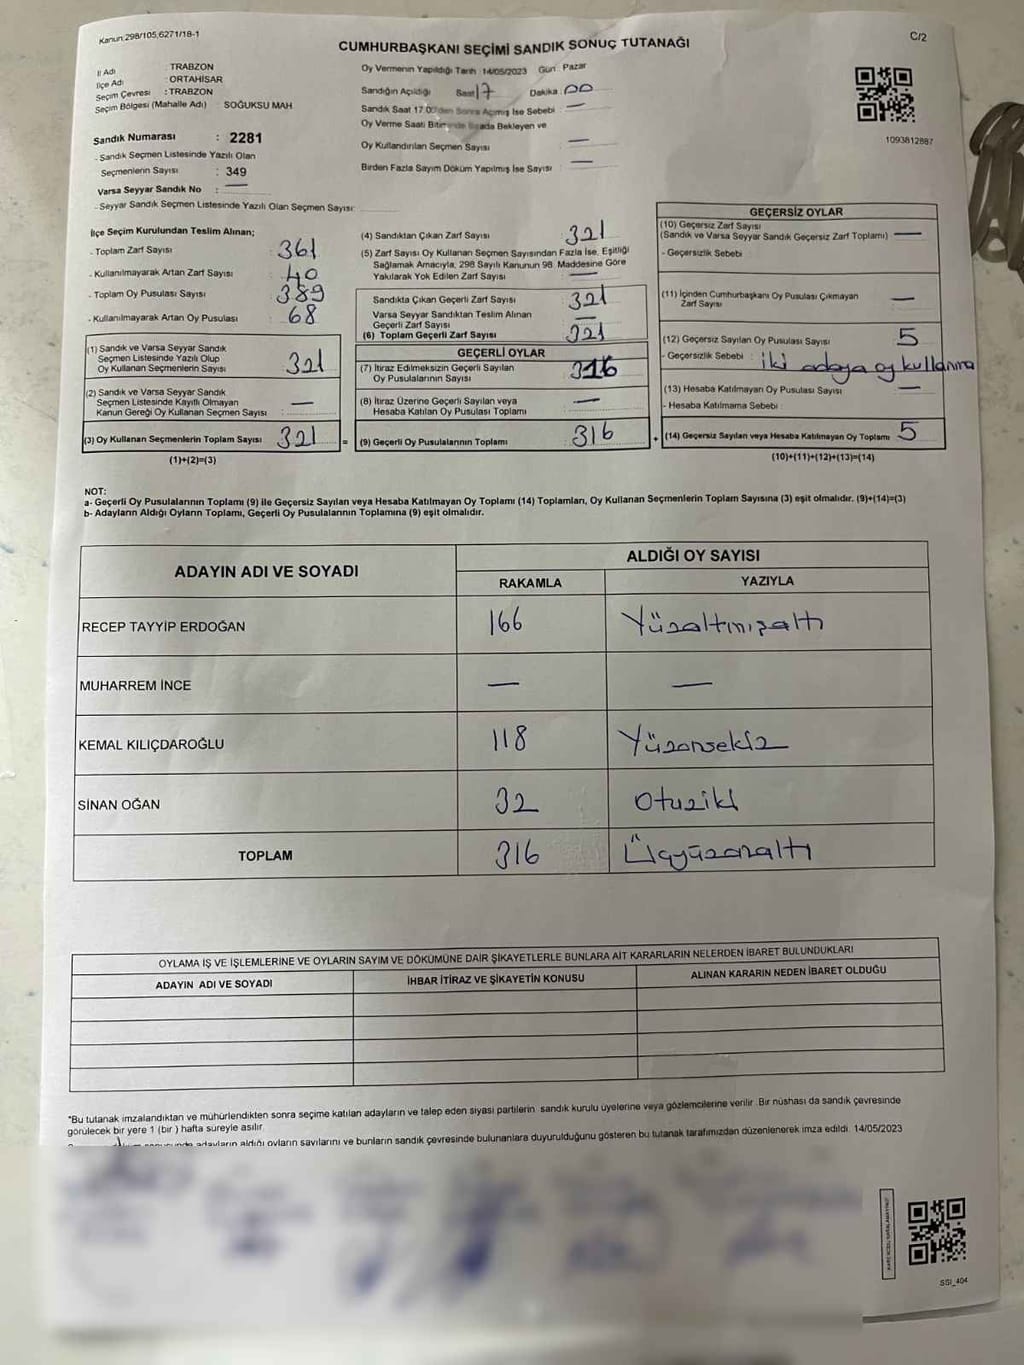 Kanun:298/105,6271/18-1
C/2
CUMHURBAŞKANI SEÇİMİ SANDIK SONUÇ TUTANAĞI
İl Adı : TRABZON
İlçe Adı : ORTAHİSAR
Seçim Çevresi : TRABZON
Seçim Bölgesi (Mahalle Adı) : SOĞUKSU MAH.
Oy Vermenin Yapıldığı Tarih : 14/05/2023 Gün : Pazar
Sandığın Açıldığı Saat 17 Dakika : 00
Sandık Saat 17.00'den Sonra Açımış İse Sebebi : —
Oy Verme Saati Bitiminde Sırada Bekleyen ve
Oy Kullandırılan Seçmen Sayısı : —
Birden Fazla Sayım Döküm Yapılmış İse Sayısı : —
1093812887
Sandık Numarası : 2281
- Sandık Seçmen Listesinde Yazılı Olan
Seçmenlerin Sayısı : 349
Varsa Seyyar Sandık No : —
- Seyyar Sandık Seçmen Listesinde Yazılı Olan Seçmen Sayısı:
İlçe Seçim Kurulundan Teslim Alınan;
- Toplam Zarf Sayısı : 361
- Kullanılmayarak Artan Zarf Sayısı : 40
- Toplam Oy Pusulası Sayısı : 389
- Kullanılmayarak Artan Oy Pusulası : 68
(1) Sandık ve Varsa Seyyar Sandık
Seçmen Listesinde Yazılı Olup
Oy Kullanan Seçmenlerin Sayısı : 321
(2) Sandık ve Varsa Seyyar Sandık
Seçmen Listesinde Kayıtlı Olmayan
Kanun Gereği Oy Kullanan Seçmen Sayısı : —
(3) Oy Kullanan Seçmenlerin Toplam Sayısı : 321 =
(1)+(2)=(3)
(4) Sandıktan Çıkan Zarf Sayısı : 321
(5) Zarf Sayısı Oy Kullanan Seçmen Sayısından Fazla İse, Eşitliği
Sağlamak Amacıyla, 298 Sayılı Kanunun 98. Maddesine Göre
Yakılarak Yok Edilen Zarf Sayısı : —
Sandıkta Çıkan Geçerli Zarf Sayısı : 321
Varsa Seyyar Sandıktan Teslim Alınan
Geçerli Zarf Sayısı : —
(6) Toplam Geçerli Zarf Sayısı : 321
GEÇERLİ OYLAR
(7) İtiraz Edilmeksizin Geçerli Sayılan
Oy Pusulalarının Sayısı : 316
(8) İtiraz Üzerine Geçerli Sayılan veya
Hesaba Katılan Oy Pusulası Toplamı : —
(9) Geçerli Oy Pusulalarının Toplamı : 316 +
GEÇERSİZ OYLAR
(10) Geçersiz Zarf Sayısı
(Sandık ve Varsa Seyyar Sandık Geçersiz Zarf Toplamı) : —
- Geçersizlik Sebebi :
(11) İçinden Cumhurbaşkanı Oy Pusulası Çıkmayan
Zarf Sayısı : —
(12) Geçersiz Sayılan Oy Pusulası Sayısı : 5
- Geçersizlik Sebebi : iki adaya oy kullanma
(13) Hesaba Katılmayan Oy Pusulası Sayısı : —
- Hesaba Katılmama Sebebi :
(14) Geçersiz Sayılan veya Hesaba Katılmayan Oy Toplamı : 5
(10)+(11)+(12)+(13)=(14)
NOT:
a- Geçerli Oy Pusulalarının Toplamı (9) ile Geçersiz Sayılan veya Hesaba Katılmayan Oy Toplamı (14) Toplamları, Oy Kullanan Seçmenlerin Toplam Sayısına (3) eşit olmalıdır. (9)+(14)=(3)
b- Adayların Aldığı Oyların Toplamı, Geçerli Oy Pusulalarının Toplamına (9) eşit olmalıdır.
ADAYIN ADI VE SOYADI
ALDIĞI OY SAYISI
RAKAMLA YAZIYLA
RECEP TAYYİP ERDOĞAN 166 Yüzaltmışaltı
MUHARREM İNCE — —
KEMAL KILIÇDAROĞLU 118 Yüzonsekiz
SİNAN OĞAN 32 Otuziki
TOPLAM 316 Üçyüzonaltı
OYLAMA İŞ VE İŞLEMLERİNE VE OYLARIN SAYIM VE DÖKÜMÜNE DAİR ŞİKAYETLERLE BUNLARA AİT KARARLARIN NELERDEN İBARET BULUNDUKLARI
ADAYIN ADI VE SOYADI İHBAR İTİRAZ VE ŞİKAYETİN KONUSU ALINAN KARARIN NEDEN İBARET OLDUĞU
*Bu tutanak imzalandıktan ve mühürlendikten sonra seçime katılan adayların ve talep eden siyasi partilerin sandık kurulu üyelerine veya gözlemcilerine verilir. Bir nüshası da sandık çevresinde
görülecek bir yere 1 (bir ) hafta süreyle asılır.
adayların aldığı oyların sayılarını ve bunların sandık çevresinde bulunanlara duyurulduğunu gösteren bu tutanak tarafımızdan düzenlenerek imza edildi. 14/05/2023
SSI_404